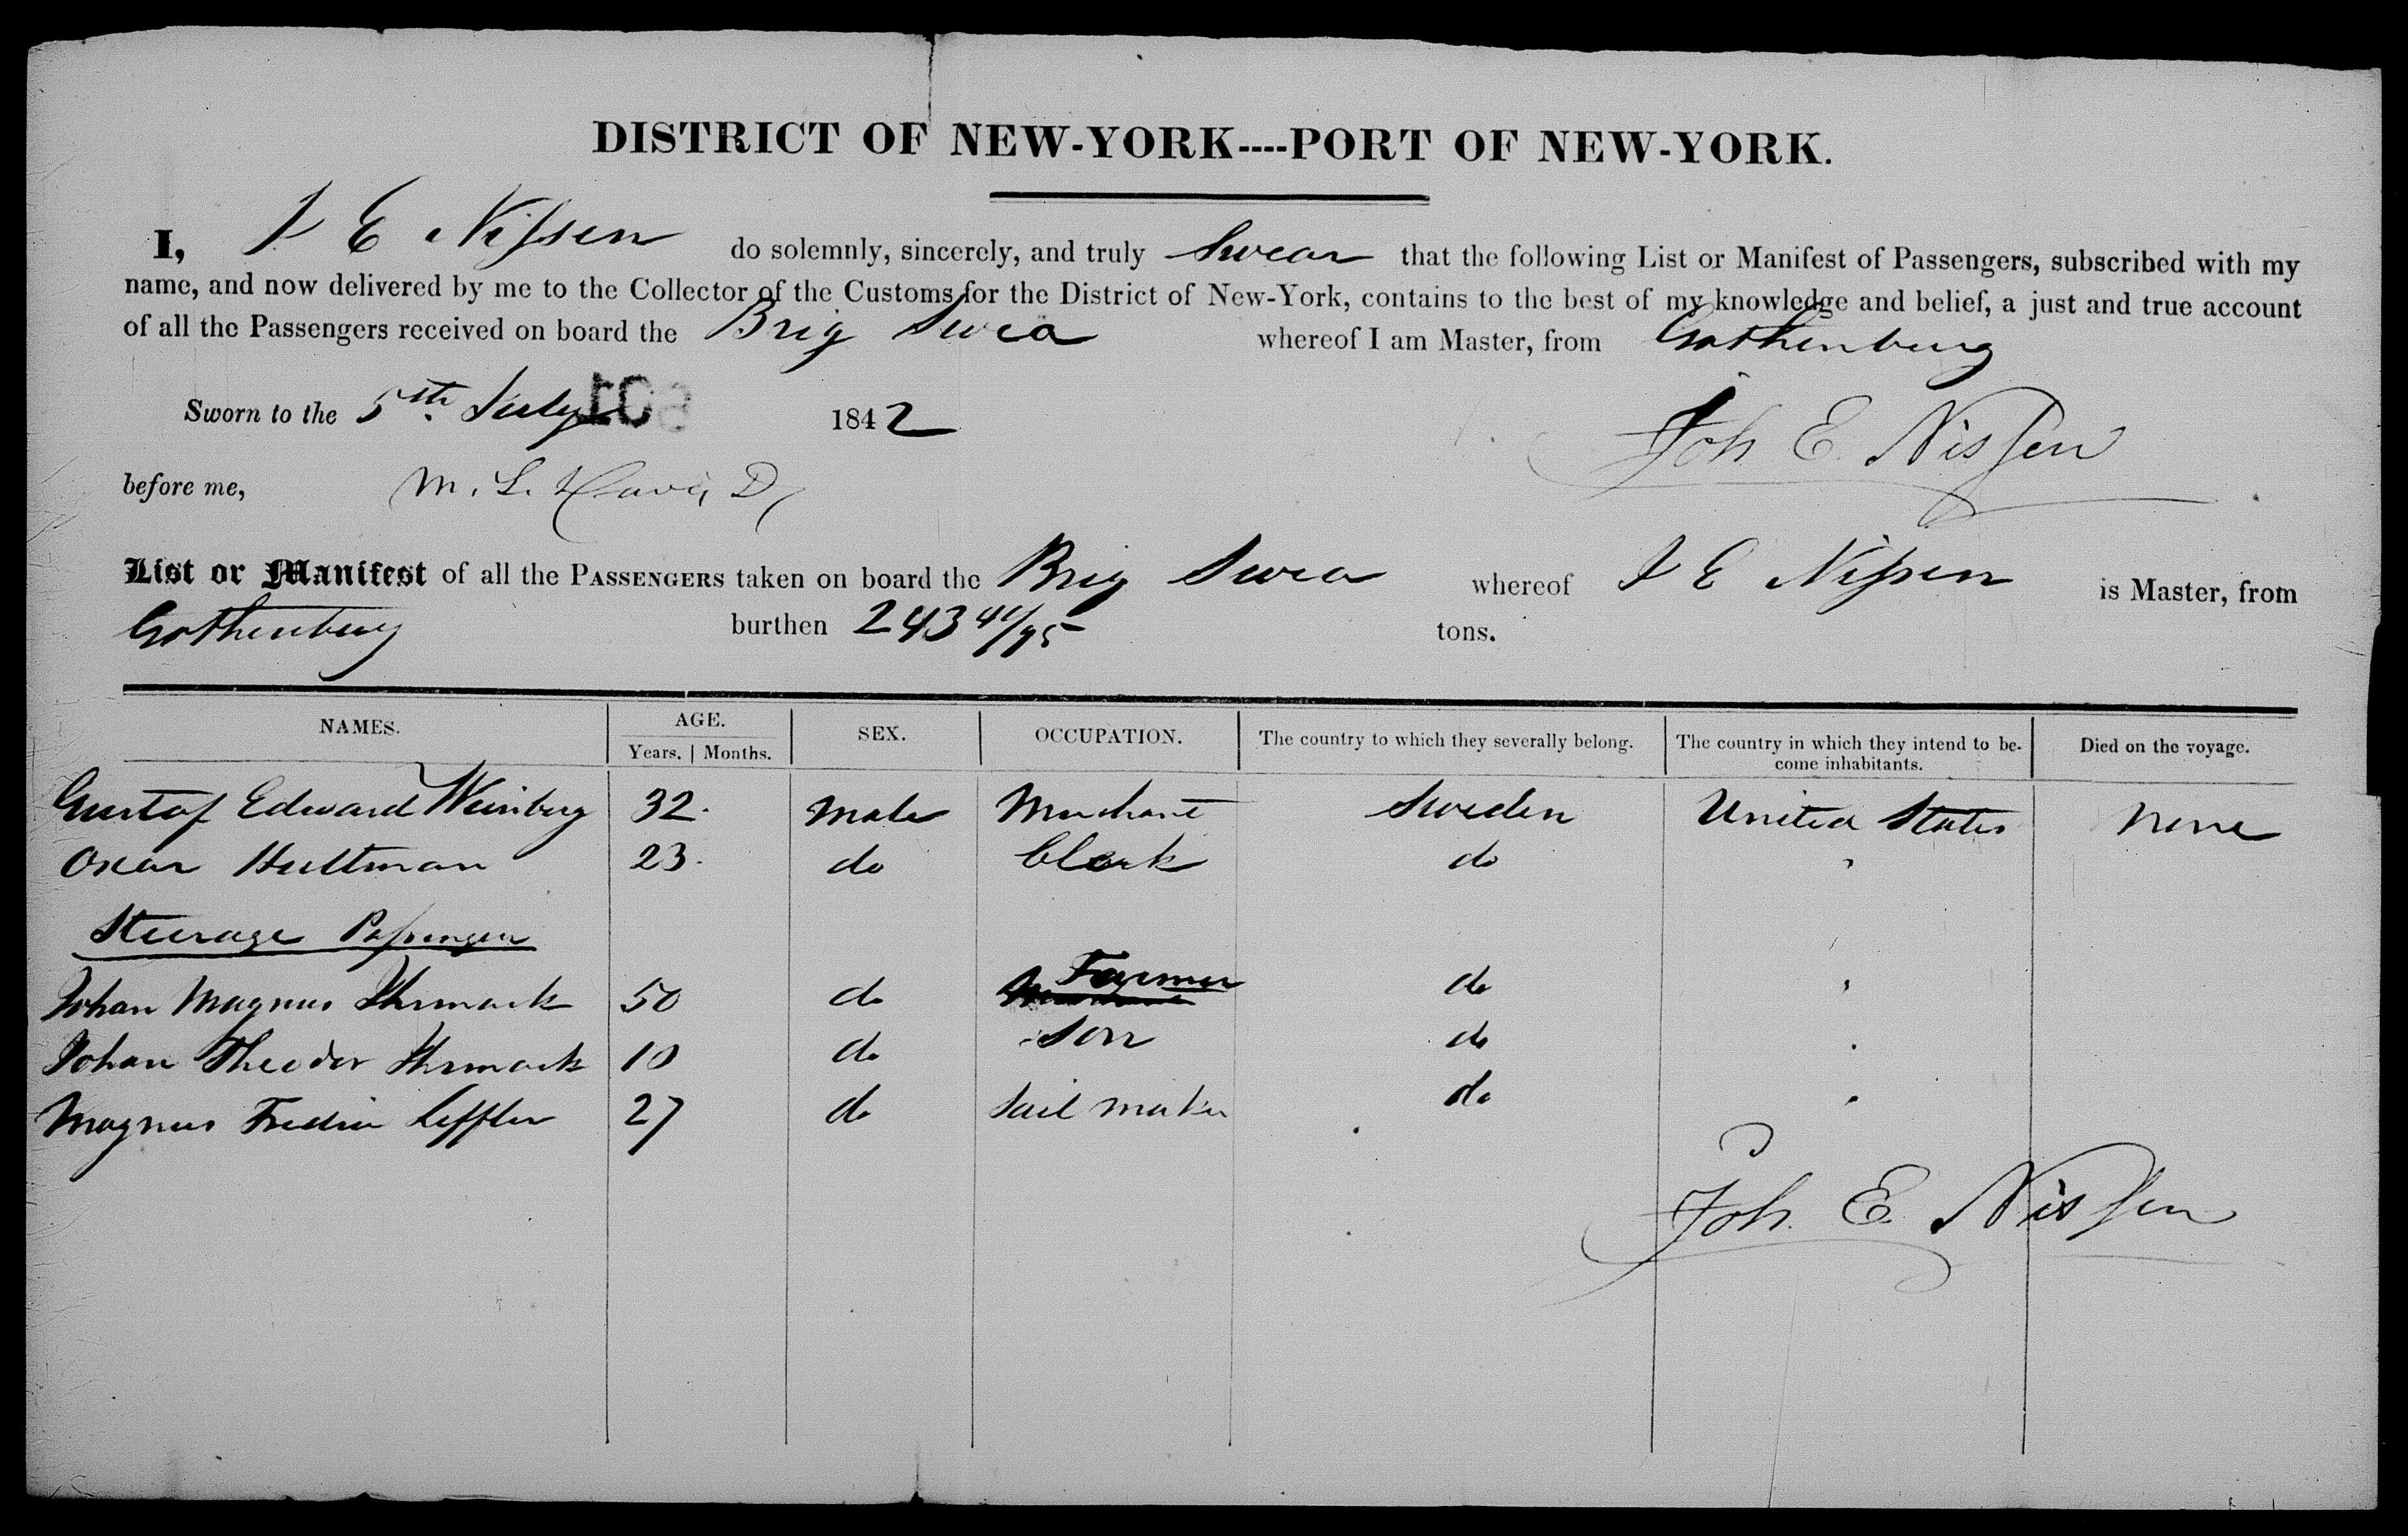 DISTRICT OF NEW-YORK----PORT OF NEW-YORK.
I, J E Nissen do solemnly, sincerely, and truly Swear that the following List or Manifest of Passengers, subscribed with my
name, and now delivered by me to the Collector of the Customs for the District of New-York, contains to the best of my knowledge and belief, a just and true account
of all the Passengers received on board the Brig Swea whereof I am Master, from Gothenburg
Sworn to the 5th. July 1842 Joh E. Nissen
before me, M. L. Davis, D
List or Manifest of all the PASSENGERS taken on board the Brig Swea whereof J E Nissen is Master, from
Gothenburg burthen 243 41/95 tons.
NAMES. AGE. Years. | Months. SEX. OCCUPATION. The country to which they severally belong. The country in which they intend to be-come inhabitants. Died on the voyage.
Gustof Edward 32. Male Merchant Sweden United States None
Oscar Hultman 23. do Clerk do "
Steerage Passenger
Johan Magnus 50 do Farmer do "
Johan Theodor 10 do Son do "
Magnus Leffler 27 do Sail maker do "
Joh. E. Nissen